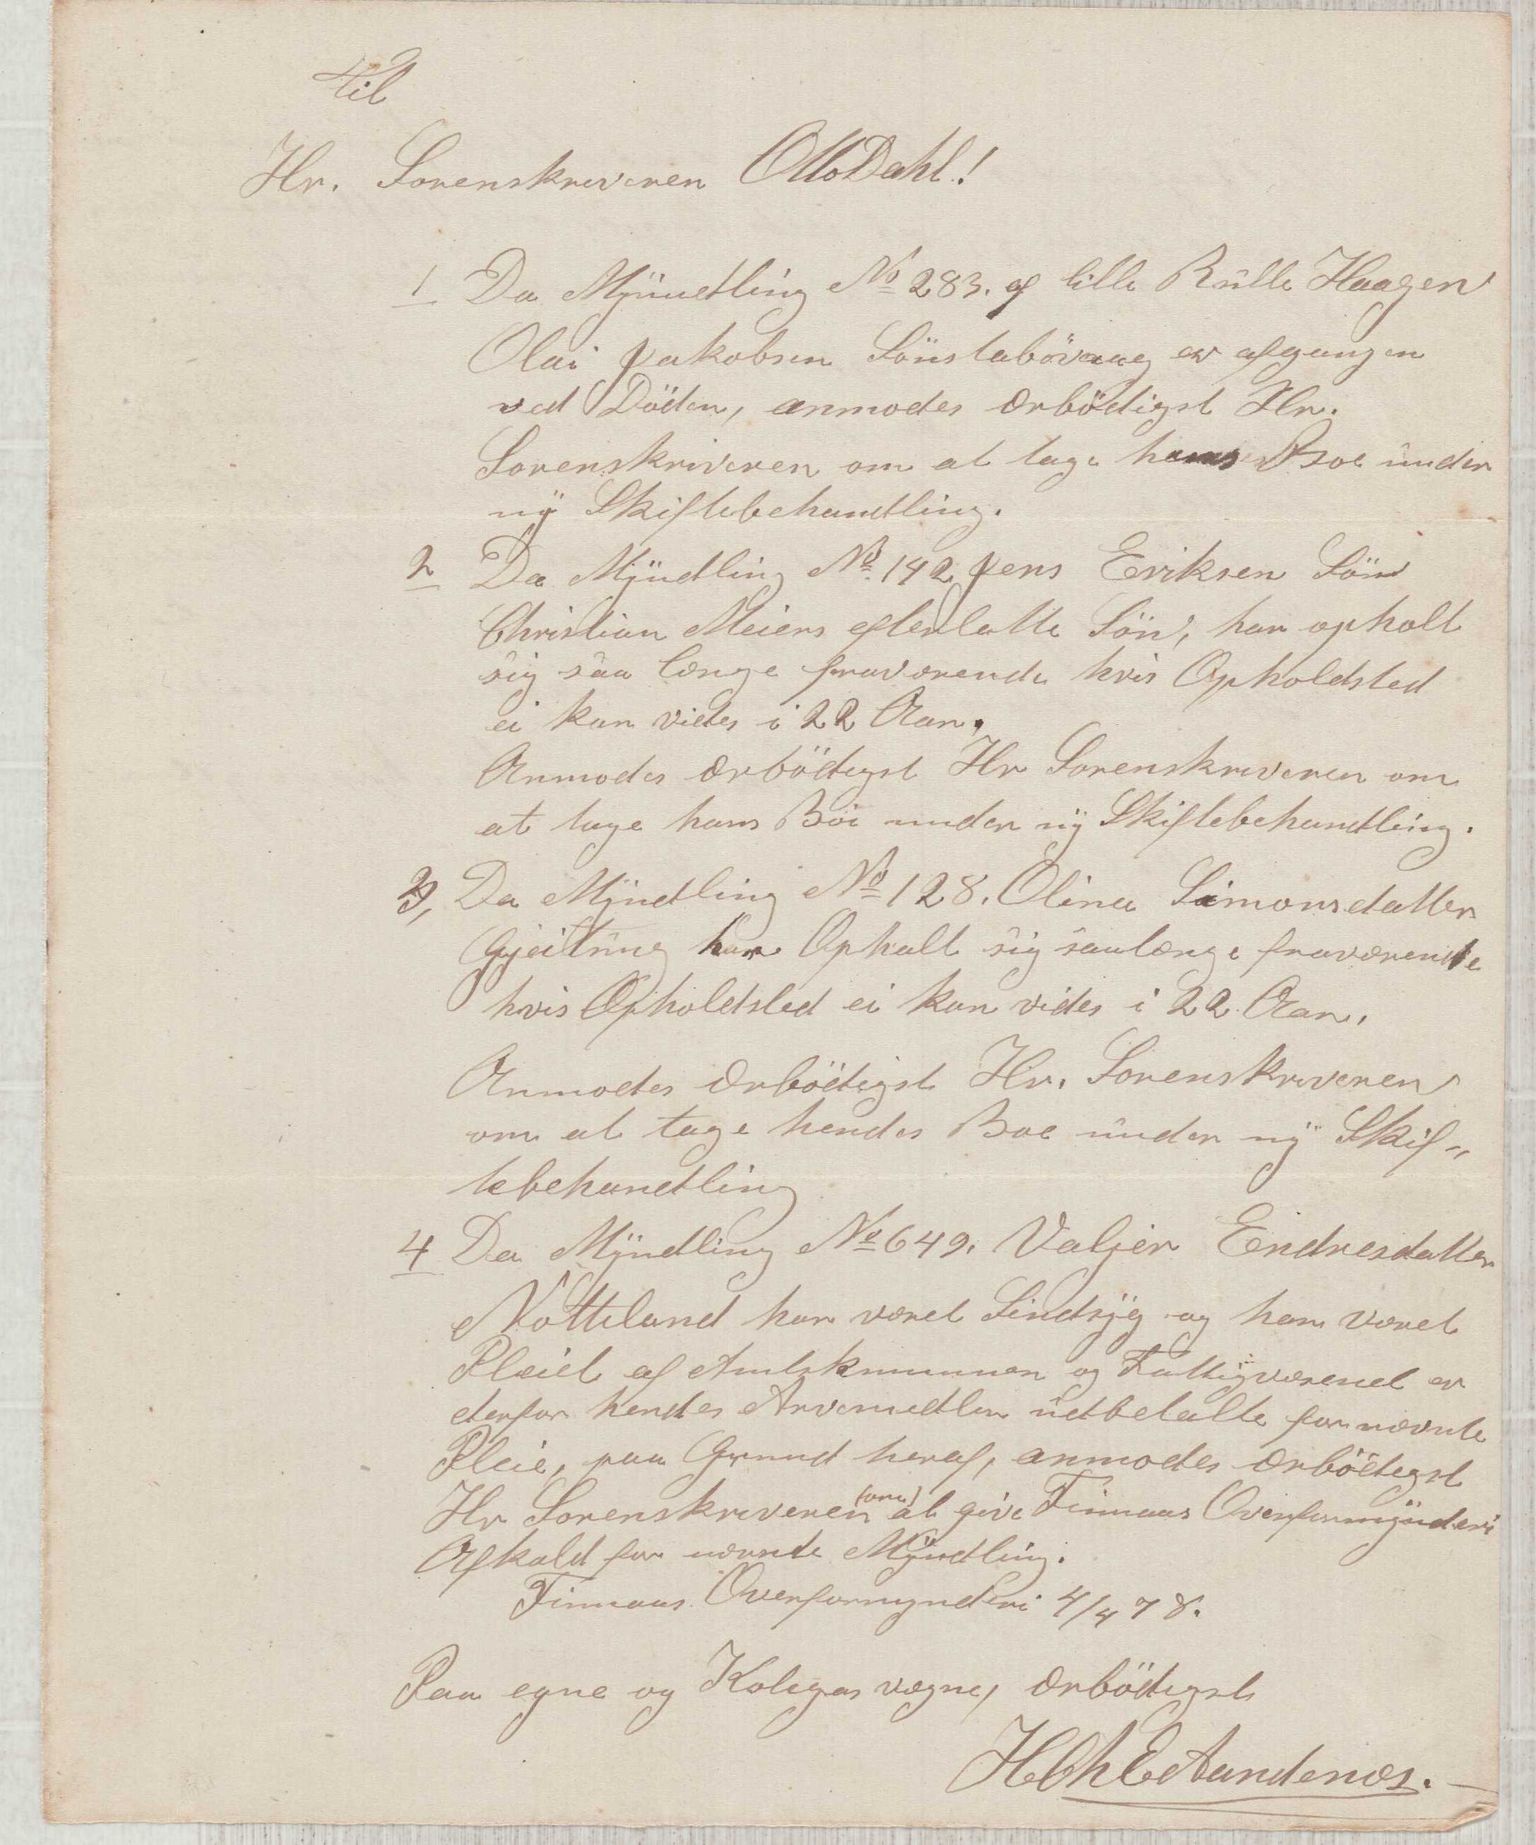 Til
Hr. Sorenskriveren Otto Dahl!
1 Da Myndling No 283. af lille Rulle Haagen
Olai Jakobsen Sönstabövaag er afgangen
ved Döden, anmodes ærbödigst Hr.
Sorenskriveren om at tage hans Boe under
ny Skiftebehandling.
2 Da Myndling No 142 Jens Eriksen Sön
Christian Meiers efterlatte Sön, har opholt
sig saa længe fraværende hvis Opholdsted
ei kan vides i 22 Aar.
Anmodes ærbödigst Hr Sorenskriveren om
at tage hans Boe under ny Skiftebehandling.
3, Da Myndling No 128. Olina Simonsdatter
Gjeitung har Ophalt sig saalænge fraværende
hvis Opholdsted ei kan vides i 22 Aar.
Anmodes ærbödigst Hr. Sorenskriveren
om at tage hendes Boe under ny Skif-
tebehandling
4 Da Myndling No 649. Valjer Endresdatter
Notteland har været Sindsyg og har været
Pleiet af Amtskmunnen og Fattigvæsenet er
derfor hendes Arvemidler udbetalte for nævnte
Pleie, paa Grund heraf, anmodes ærbödigst
Hr Sorenskriveren (om) at give Finnaas Overformynderi
Afkald for nævnte Myndling.
Finnaas Overformynderi 4/4 78.
Paa egne og Kolegas vegne, ærbödigst
H Ch E Aandenæs.